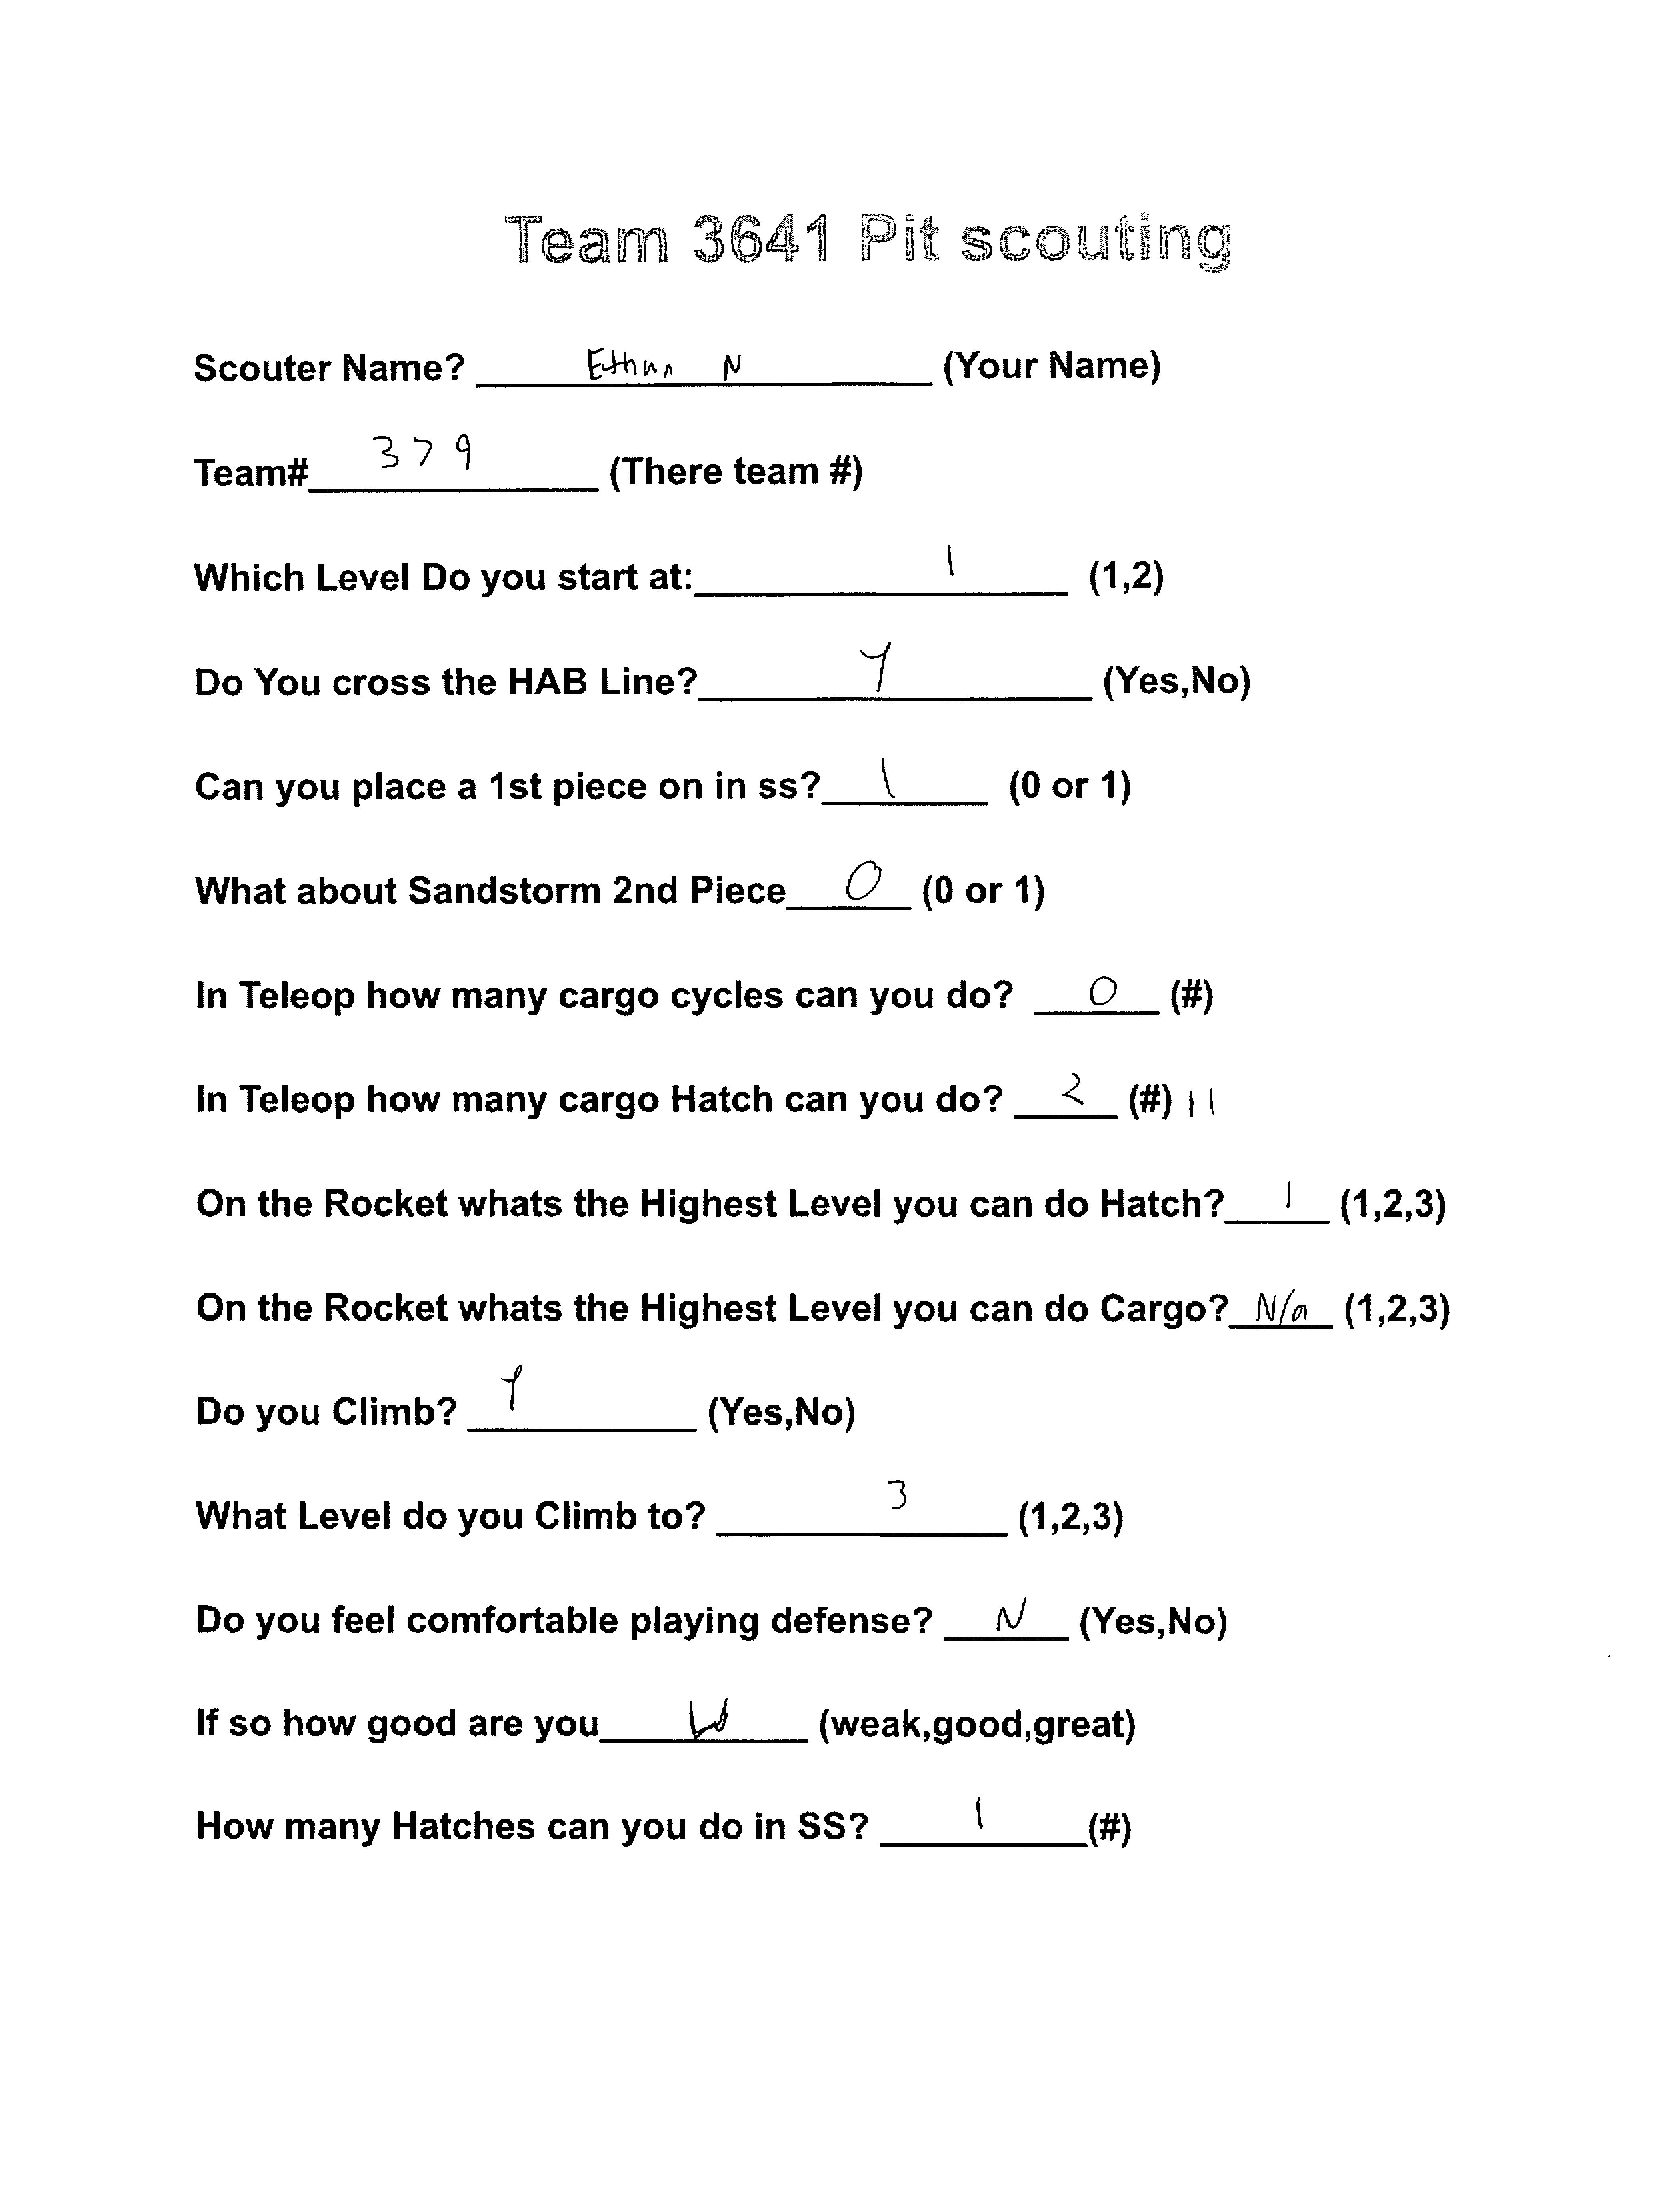 Team 3641 Pit scouting
Scouter Name? Ethan N (Your Name)
Team# 379 (There team #)
Which Level Do you start at: 1 (1,2)
Do You cross the HAB Line? Y (Yes,No)
Can you place a 1st piece on in ss? 1 (0 or 1)
What about Sandstorm 2nd Piece 0 (0 or 1)
In Teleop how many cargo cycles can you do? 0 (#)
In Teleop how many cargo Hatch can you do? 2 (#) 11
On the Rocket whats the Highest Level you can do Hatch? 1 (1,2,3)
On the Rocket whats the Highest Level you can do Cargo? N/a (1,2,3)
Do you Climb? Y (Yes,No)
What Level do you Climb to? 3 (1,2,3)
Do you feel comfortable playing defense? N (Yes,No)
If so how good are you W (weak,good,great)
How many Hatches can you do in SS? 1 (#)